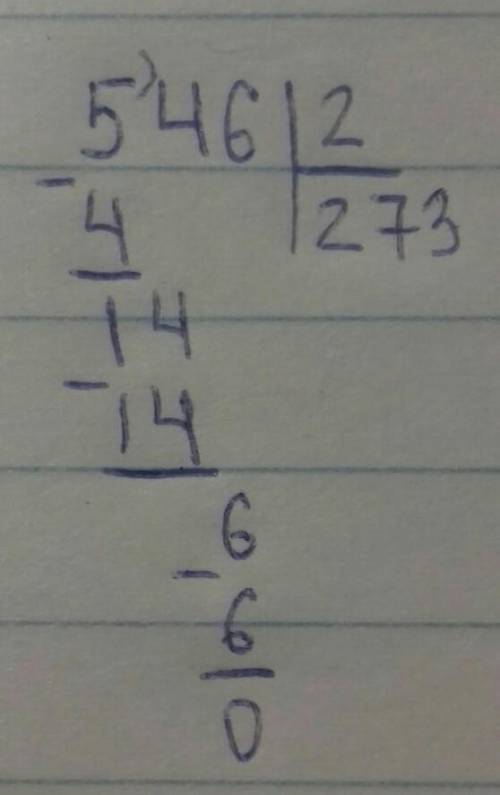 5'46 2
- 4 273
14
- 14
6
- 6
0